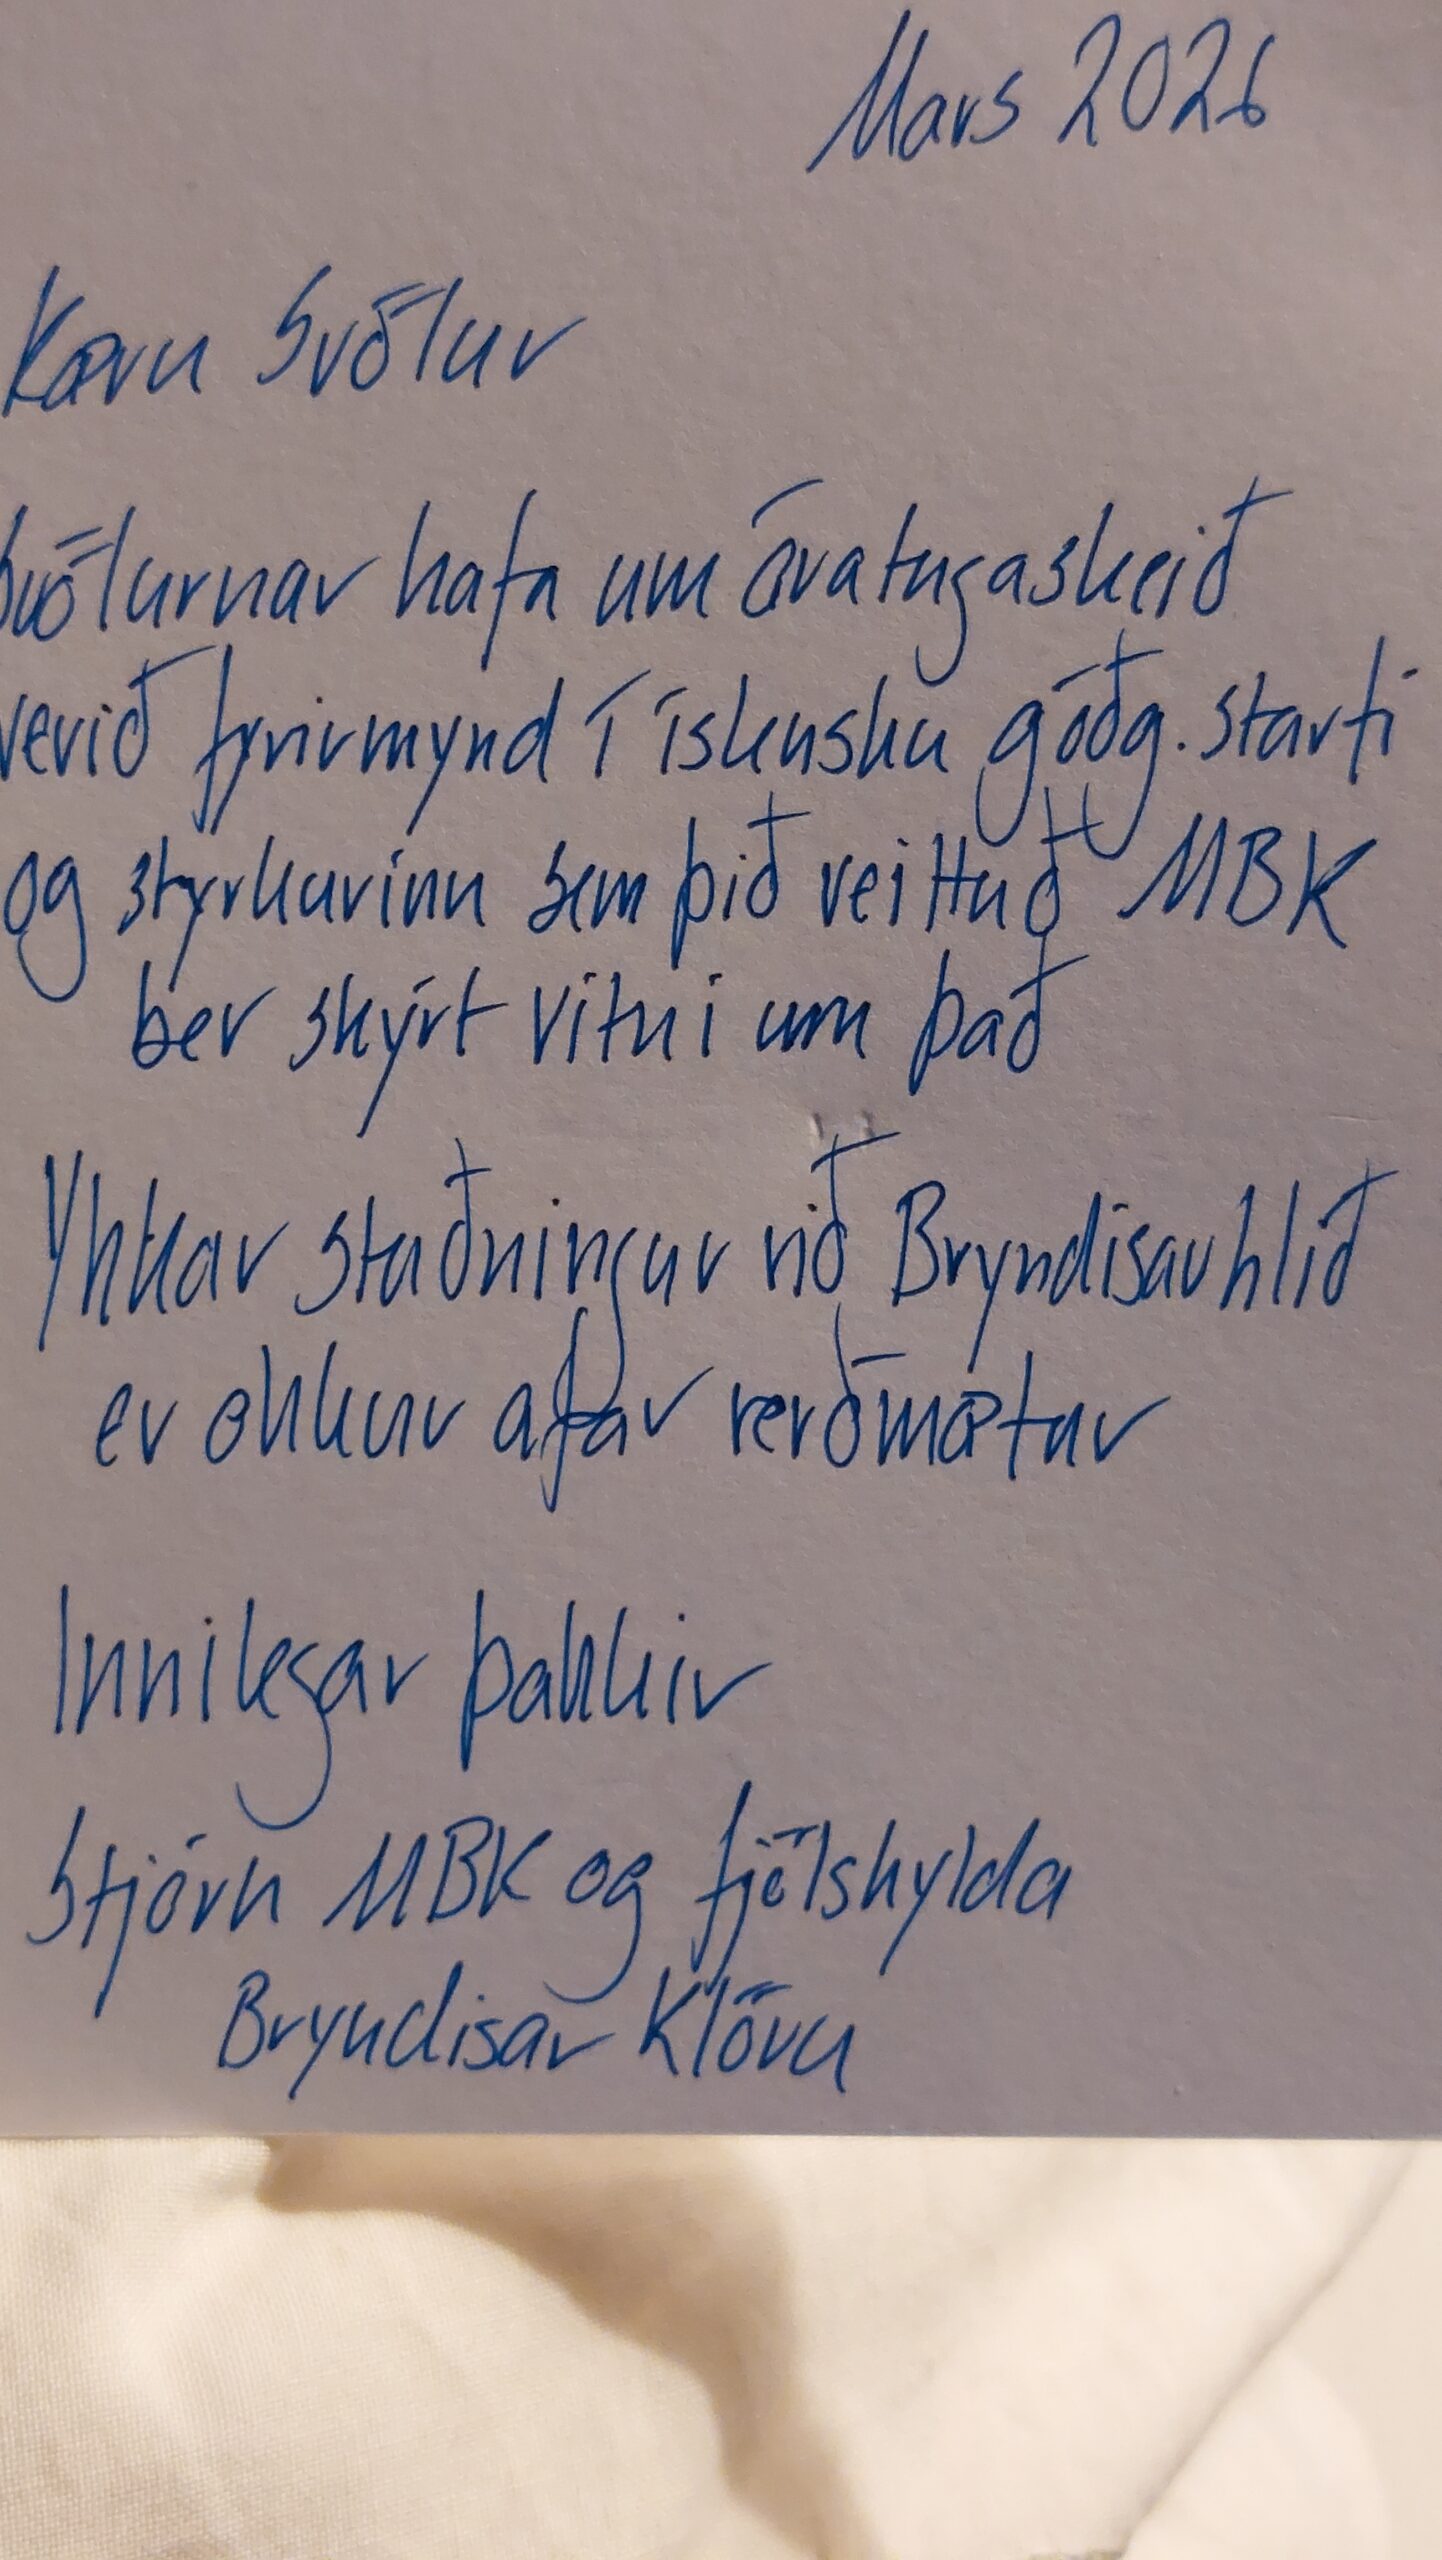 Mars 2026
Kæru Svölur
Svölurnar hafa um áratugaskeið
verið fyrirmynd í íslensku góðg. starfi
og styrkurinn sem þið veittuð MBK
ber skýrt vitni um það
Ykkar stuðningur við Bryndísarhlíð
er okkur afar verðmætur
Innilegar þakkir
Stjórn MBK og fjölskylda
Bryndísar Klöru